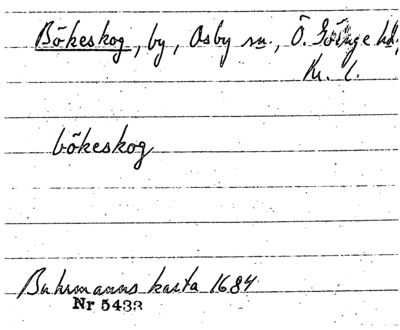 Bökeskog, by, Osby sn., Ö. Göinge hd,
Kr. l.
bökeskog
Buhrmanns karta 1684
Nr 5433